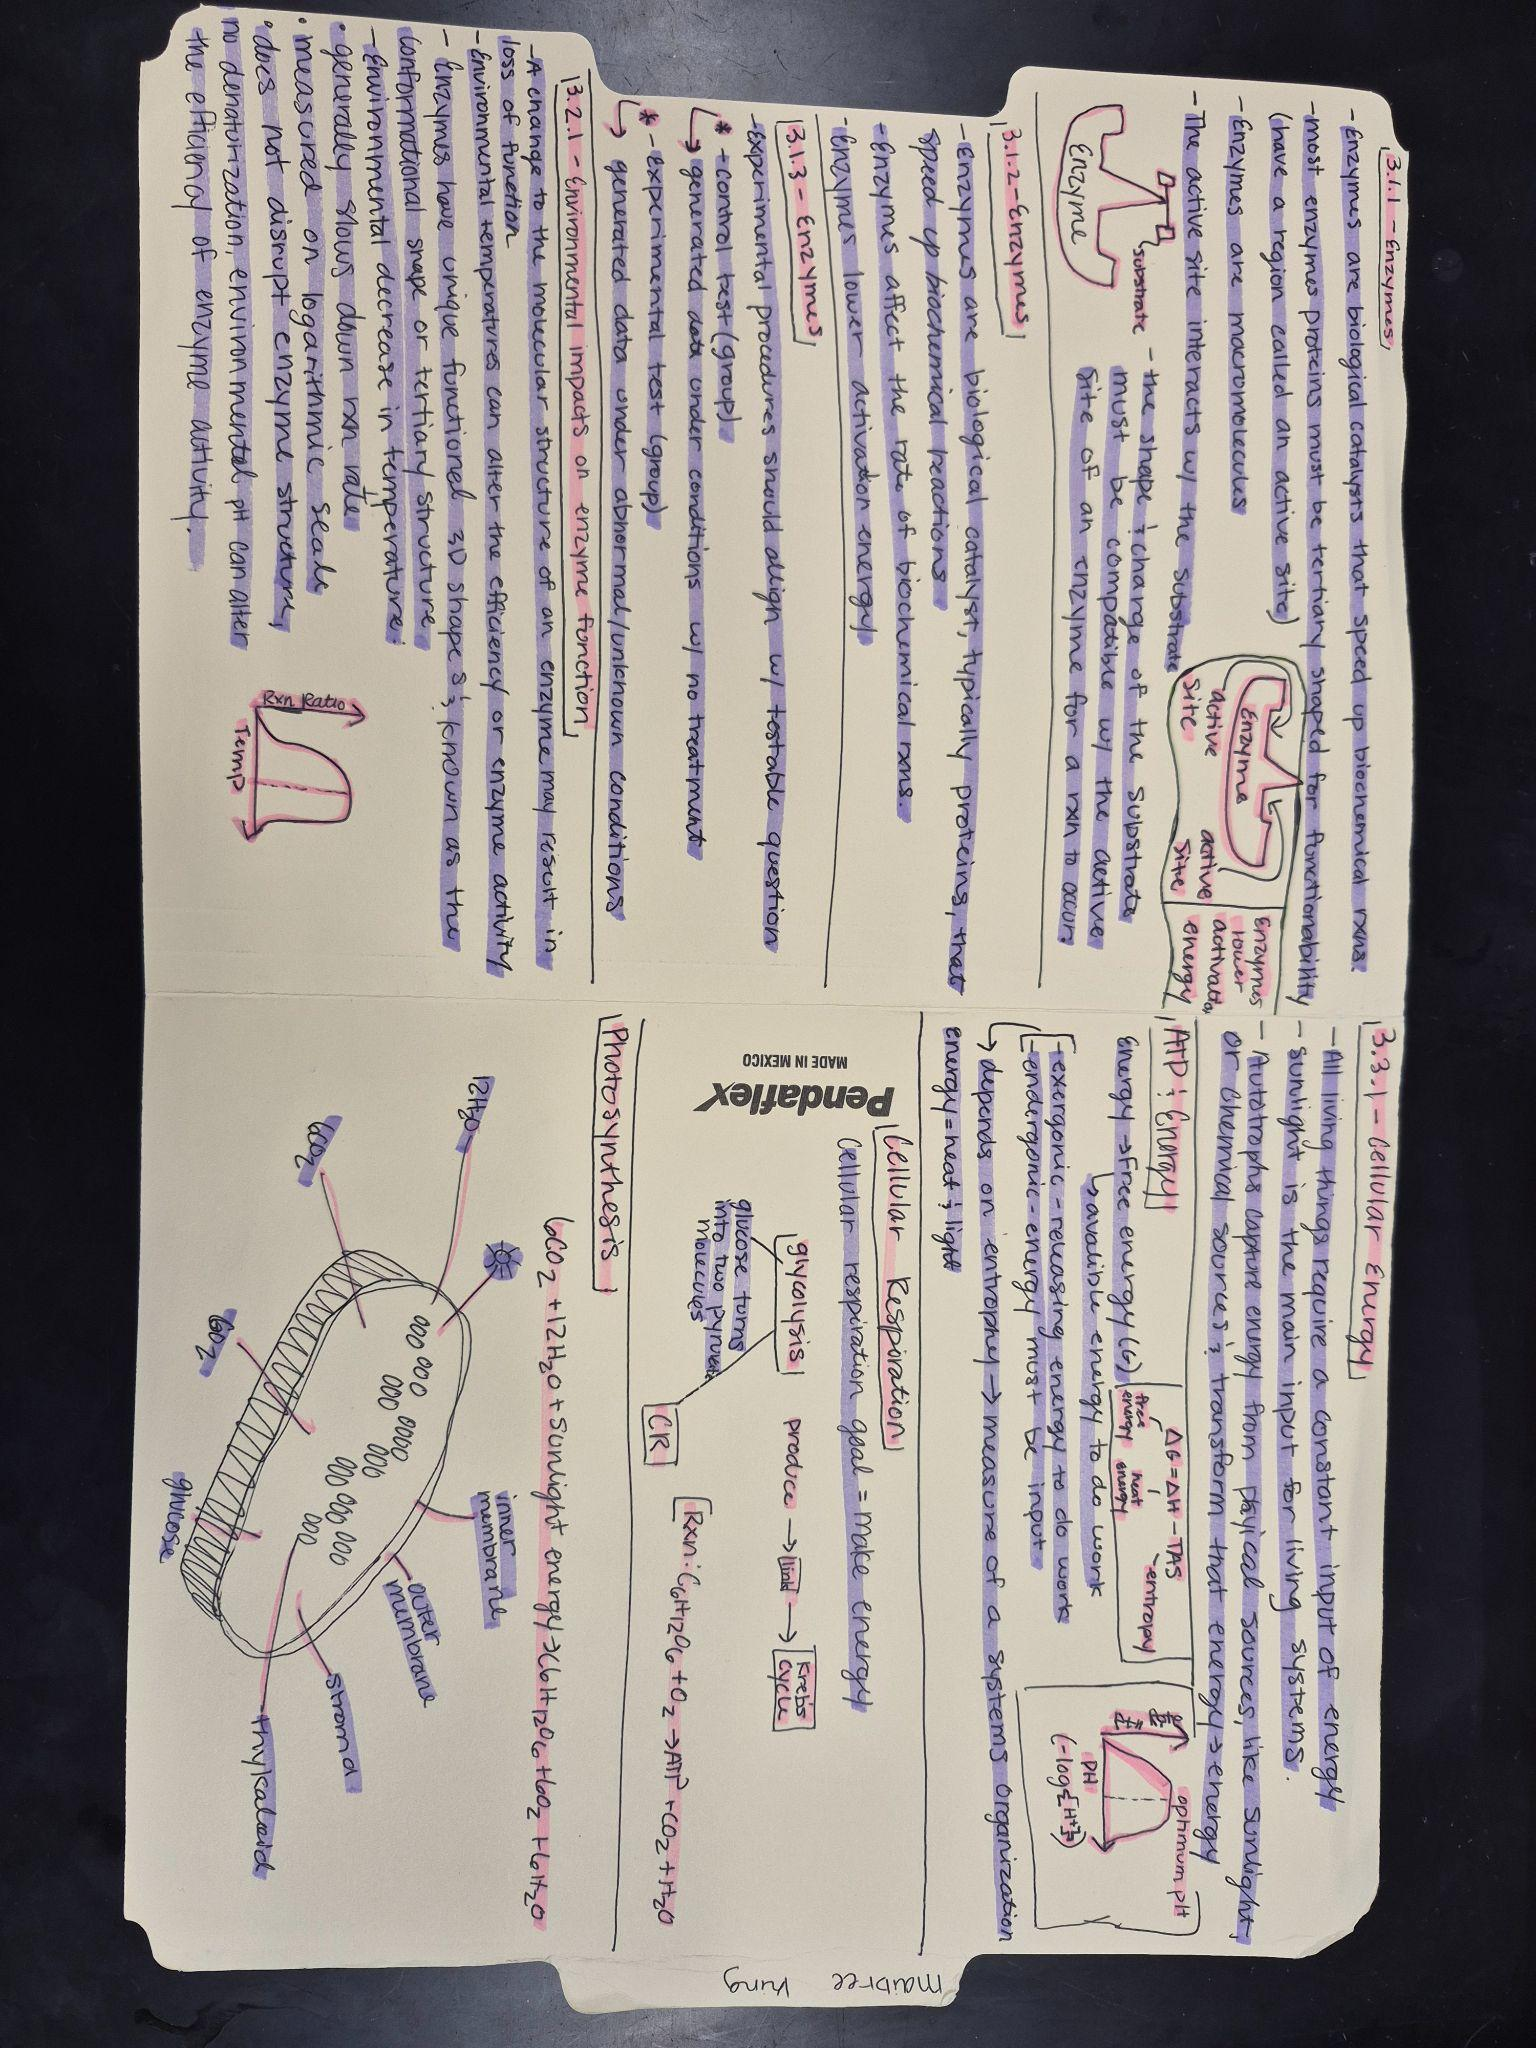 3.1.1 - Enzymes
- Enzymes are biological catalysts that speed up biochemical rxns.
- most enzymes proteins must be tertiary shaped for functionability
(have a region called an active site)
- Enzymes are macromolecules
- The active site interacts w/ the substrate
substrate
Enzyme
- the shape & charge of the substrate
must be compatible w/ the active
site of an enzyme for a rxn to occur.
Enzyme
active
site
active
site
Enzymes
lower
activation
energy
3.1.2 - Enzymes
- enzymes are biological catalyst, typically proteins, that
speed up biochemical reactions
- Enzymes affect the rate of biochemical rxns.
- Enzymes lower activation energy
3.1.3 - Enzymes
- experimental procedures should allign w/ testable question
* - control test (group)
→ generated data under conditions w/ no treatment
* - experimental test (group)
→ generated data under abnormal/unknown conditions
3.2.1 - Environmental impacts on enzyme function
- A change to the molecular structure of an enzyme may result in
loss of function
- Environmental temperatures can alter the efficiency or enzyme activity
- Enzymes have unique functional 3D shapes & known as the
conformational shape or tertiary structure
- Environmental decrease in temperature:
• generally slows down rxn rate
• measured on logarithmic scale
• does not disrupt enzyme structure,
no denaturization, environmental pH can alter
the efficiency of enzyme activity.
Rxn Ratio
Temp
3.3.1 - Cellular Energy
- All living things require a constant input of energy
- sunlight is the main input for living systems.
- Autotrophs capture energy from phyical sources, like sunlight,
or chemical sources & transform that energy → energy
ATP & Energy
Energy → free energy (G)
↳ avalible energy to do work
ΔG = ΔH - TΔS
free
energy
heat
energy
entropy
optimum pH
PH
(-log[H+])
- exergonic - releasing energy to do work
- endergonic - energy must be input
→ depends on entrophy → measure of a systems organization
energy = heat & light
Cellular Respiration
Cellular respiration goal = make energy
Pendaflex
MADE IN MEXICO
glycolysis
produce → link → Krebs
cycle
glucose turns
into two pyruvate
molecules
CR
Rxn: C6H12O6 + O2 → ATP + CO2 + H2O
Photosynthesis
6CO2 + 12H2O + Sunlight energy → C6H12O6 + 6O2 + 6H2O
12H2O
6CO2
6O2
glucose
inner
membrane
outer
membrane
stroma
thylkaloid
maidree king